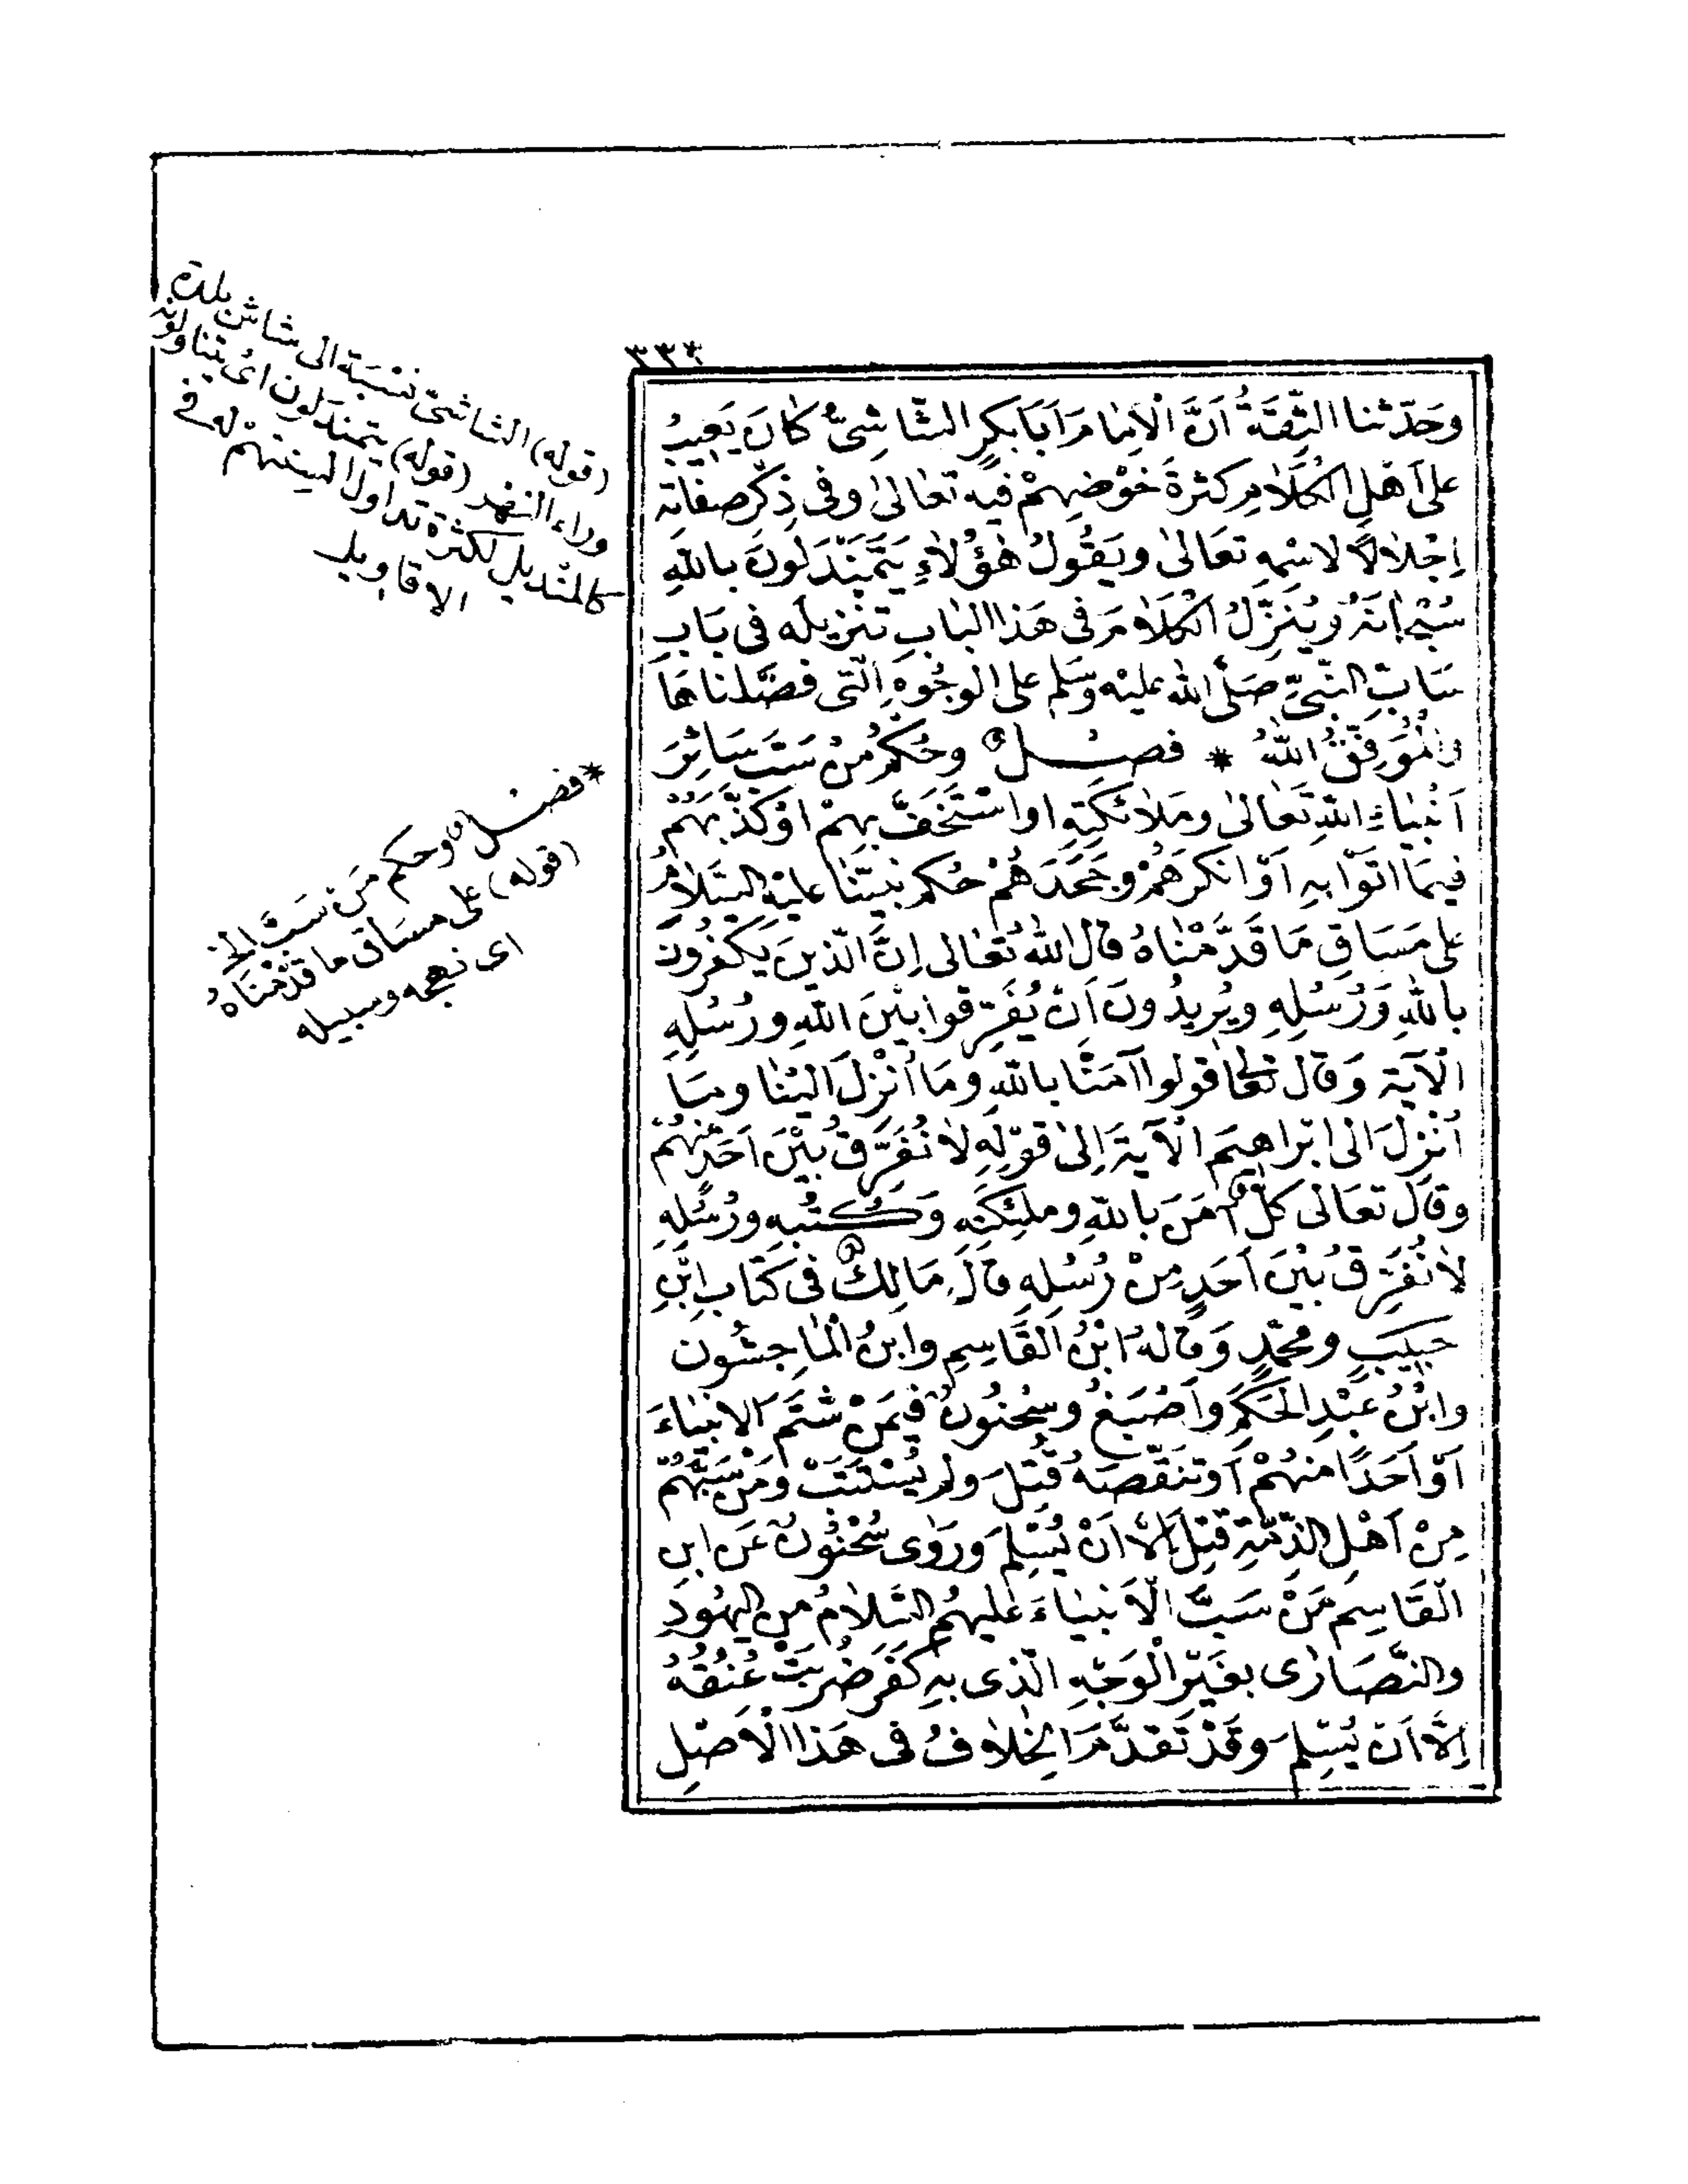 ٣٣٤
وَحَدَّثنا الثِّقَةُ اَنَّ الْاِمَامَ اَبَا بَكرٍ الشَّاشِىَّ كَانَ يَعيبُ
على اَهْلِ الْكَلَامِ كثرةَ خَوْضِهِمْ فيه تعالى وفى ذِكْرِ صفاته
اِجْلَالًا لاسْمِهِ تعَالى ويَقُولُ هٰؤُلاءِ يَتَمَنْدَلُونَ باللهِ
سُبْحانَهُ ويُنَزَّلُ الْكَلَامُ فى هَذا الباب تنزيلَه فى بَابِ
سَابِّ النَّبِىِّ صَلَّى الله عليْه وَسَلم على الوجُوهِ الَّتى فصَّلناهَا
وَالْمُوَفِّقُ اللهُ * فصْلٌ وحُكْمُ مَنْ سَبَّ سَائِرَ
اَنْبِيَاءِ اللهِ تَعَالى ومَلَائكَتِهِ اواسْتَخَفَّ بِهِمْ اوْ كَذَّبَهُمْ
فيمَا اتَوْا بِهِ اَوْ انكرَهُمْ وجَحَدَهُمْ حُكمُ نبيِّنَا عليْهِ السَّلَامُ
على مَسَاقِ مَا قَدَّمْنَاهُ قال اللهُ تعالى اِنَّ الَّذينَ يَكْفُرُون
باللهِ وَرُسُلِهِ ويُريدُونَ اَنْ يُفَرِّقوا بيْنَ اللهِ ورُسُلِهِ
الْآيَة وَقال تعالى قولوا آمَنَّا باللهِ ومَا اُنْزِلَ اليْنا ومَا
اُنْزِلَ الى ابْراهِيمَ الْآيَةَ اِلىٰ قوْلِهِ لَا نُفَرِّقُ بَيْنَ اَحَدٍ مِنْهُمْ
وقَالَ تعَالى كلٌّ آمَنَ باللهِ وملئِكَتِهِ وَكُتُبِهِ ورُسُلِهِ
لَا نُفَرِّقُ بَيْنَ اَحَدٍ مِنْ رُسُلِهِ قَالَ مَالِكٌ فى كتَابِ ابْنِ
حَبِيبٍ ومُحَمَّدٍ وَقَالَهُ ابْنُ الْقَاسِمِ وابنُ الْمَاجِشُون
وابْنُ عَبْدِ الحَكَمِ وَاَصْبَغُ وسُحْنُونٌ فيمَنْ شَتَمَ الانبيَاءَ
اَوْ اَحَدًا منهُمْ اَوتنقَّصَهُ قُتِلَ ولم يُسْتَتَبْ وَمَنْ سَبَّهُمْ
مِنْ اَهْلِ الذِّمَّةِ قُتِلَ اِلَّا اَنْ يُسْلِمَ وَرَوٰى سُحْنُونٌ عَن ابن
الْقَاسِمِ مَنْ سَبَّ الْاَنبيَاءَ عَليهِمُ السَّلَامُ من اليهُودِ
والنَّصَارٰى بغَيْرِ الْوَجْهِ الَّذى بِهِ كَفَرَ ضُرِبَتْ عُنُقُهُ
اِلَّا اَن يُسْلِمَ وقَدْ تَقَدَّمَ الخِلَافُ فى هَذا الْاَصْلِ
(قوله) الشاشىّ نسْبَة الى شاش بلدة
وراء النهر (قوله) يتمندلون اى يتناولونه
كالمنْديل لكثرة تداول السنتهمْ له فى
الاقاويل
* فصْلٌ وحكم مَن سَبَّ الخ
(قوله) على مسَاق ما قدَّمْنَاهُ
اى نهجه وسبيله